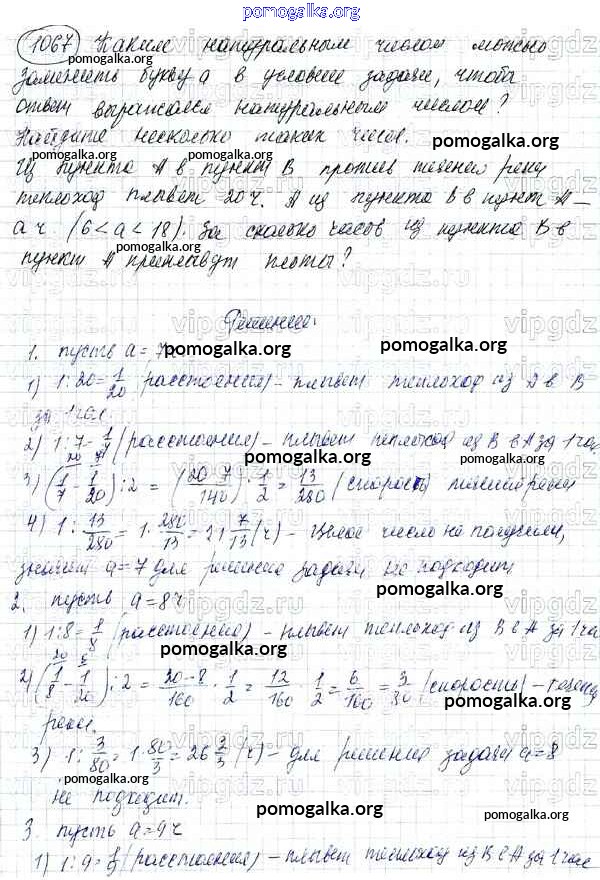 pomogalka.org
1067 Каким натуральным числом можно
заменить букву a в условие задачи, чтобы
ответ выражался натуральным числом?
Найдите несколько таких чисел.
Из пункта А в пункт В против течения реки
теплоход плывет 20 ч. А из пункта В в пункт А –
a ч. (6 < a < 18). За сколько часов из пункта В в
пункт А приплывут плоты?
Решение:
1. пусть a = 7ч
1) 1:20 = 1/20 (расстояния) – плывет теплоход из А в В
за 1 час.
2) 1:7 = 1/7 (расстояния) – плывет теплоход из В в А за 1 час
3) (1/7 - 1/20) : 2 = (20-7/140) · 1/2 = 13/280 (скорость) течения реки
4) 1 : 13/280 = 1 · 280/13 = 21 7/13 (ч) – Целое число не получили,
значит a = 7 для решения задачи не подходит
2. пусть a = 8ч
1) 1:8 = 1/8 (расстояния) – плывет теплоход из В в А за 1 час
2) (1/8 - 1/20) : 2 = 20-8/160 · 1/2 = 12/160 · 1/2 = 6/160 = 3/80 (скорость) – течения
реки.
3) 1 : 3/80 = 1 · 80/3 = 26 2/3 (ч) – для решения задачи a = 8
не подходит.
3. пусть a = 9ч
1) 1:9 = 1/9 (расстояния) – плывет теплоход из В в А за 1 час